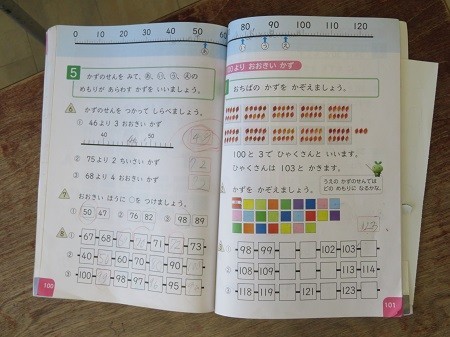 0 10 20 30 40 50 60
5 かずのせんを みて、あ、い、う、えの
めもりが あらわす かずを いいましょう。
かずのせんを つかって しらべましょう。
① 46より 3 おおきい かず
40 50
② 75より 2 ちいさい かず
③ 68より 4 おおきい かず
おおきい ほうに ○を つけましょう。
① 50 47 ② 76 82 ③ 98 89
① 67 68 71 73
② 40 60 70 90
③ 100 98 97 95
100
80 90 100 110 120
100より おおきい かず
おちばの かずを かぞえましょう。
100と 3で ひゃくさんと いいます。
ひゃくさんは 103と かきます。
うえの かずのせんでは
どの めもりに なるかな。
かずを かぞえましょう。
113
① 98 99 102 103
② 108 109 113 114
③ 118 119 121 123
101